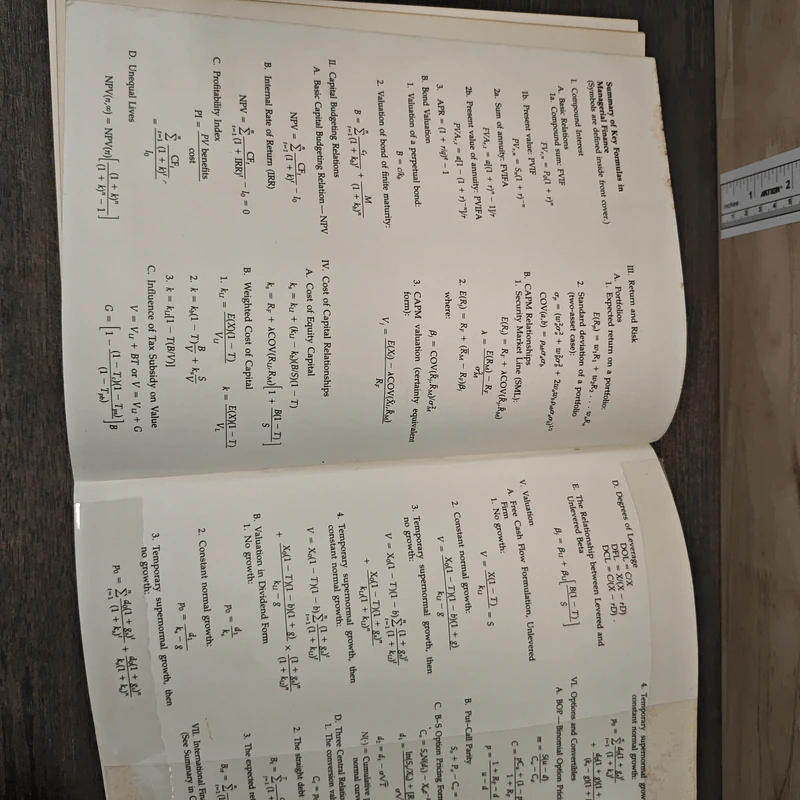 Summary of Key Formulas in
Managerial Finance
(Symbols are defined inside front cover.)
I. Compound Interest
A. Basic Relations
1a. Compound sum: FVIF
FVr,n = P0(1 + r)^n
1b. Present value: PVIF
PVr,n = Sn(1 + r)^−n
2a. Sum of annuity: FVIFA
FVAr,t = a[(1 + r)^n − 1]/r
2b. Present value of annuity: PVIFA
PVAr,t = a[1 − (1 + r)^−n]/r
3. APR = (1 + r/q)^q − 1
B. Bond Valuation
1. Valuation of a perpetual bond:
B = c/kb
2. Valuation of bond of finite maturity:
B = Σ ct/(1 + kb)^t + M/(1 + kb)^n
II. Capital Budgeting Relations
A. Basic Capital Budgeting Relation—NPV
NPV = Σ CFt/(1 + k)^t − I0
B. Internal Rate of Return (IRR)
NPV = Σ CFt/(1 + IRR)^t − I0 = 0
C. Profitability Index
PI = PV benefits/cost
= Σ CFt/(1 + k)^t / I0
D. Unequal Lives
NPV(n,∞) = NPV(n)[(1 + k)^n/((1 + k)^n − 1)]
III. Return and Risk
A. Portfolios
1. Expected return on a portfolio:
2. Standard deviation of a portfolio
(two-asset case):
COV(a,b) = ρabσaσb
B. CAPM Relationships
1. Security Market Line (SML):
E(Rj) = RF + λCOV(R̃j,R̃M)
λ = (E(RM) − RF)/σ²M
2. E(Rj) = RF + (R̄M − RF)βj
βj = COV(R̃j,R̃M)/σ²M
3. CAPM valuation (certainty equivalent
form):
Vj = (E(Xj) − λCOV(X̃j,R̃M))/RF
IV. Cost of Capital Relationships
A. Cost of Equity Capital
ks = kU + (kU − kb)(B/S)(1 − T)
ks = RF + λCOV(RU,RM)[1 + B(1 − T)/S]
B. Weighted Cost of Capital
1. kU = E(X)(1 − T)/VU k = E(X)(1 − T)/VL
2. k = kb(1 − T)B/V + ks S/V
3. k = kU[1 − T(B/V)]
C. Influence of Tax Subsidy on Value
V = VU + BT or V = VU + G
G = [1 − (1 − Tc)(1 − Tps)/(1 − Tpb)]B
D. Degrees of Leverage
DOL = C/X
DFL = X/(X − rD)
DCL = C/(X − rD)
E. The Relationship between Levered and
Unlevered Beta
βj = βU + βU[B(1 − T)/S]
V. Valuation
A. Free Cash Flow Formulation, Unlevered
Firm
1. No growth:
V = X(1 − T)/kU = S
2. Constant normal growth:
V = X0(1 − T)(1 − b)(1 + g)/(kU − g)
3. Temporary supernormal growth, then
no growth:
V = X0(1 − T)(1 − b)Σ (1 + gs)^t/(1 + kU)^t
+ X0(1 − T)(1 + gs)^n/(kU(1 + kU)^n)
4. Temporary supernormal growth, then
constant normal growth:
V = X0(1 − T)(1 − b)Σ (1 + gs)^t/(1 + kU)^t
+ X0(1 − T)(1 − b)(1 + g)/(kU − g) × (1 + gs)^n/(1 + kU)^n
B. Valuation in Dividend Form
1. No growth:
p0 = d1/ks
2. Constant normal growth:
p0 = d1/(ks − g)
3. Temporary supernormal growth, then
no growth:
p0 = Σ d0(1 + gs)^t/(1 + ks)^t + d0(1 + gs)^n/(ks(1 + ks)^n)
4. Temporary supernormal grow
constant normal growth:
VI. Options and Convertibles
A. BOP—Binomial Option Pric
B. Put–Call Parity
C. B–S Option Pricing Form
N( ) = Cumulative
normal curv
D. Three Central Relation
1. The conversion val
2. The straight debt
3. The expected re
VII. International Fina
(See Summary in C
inches
1
2